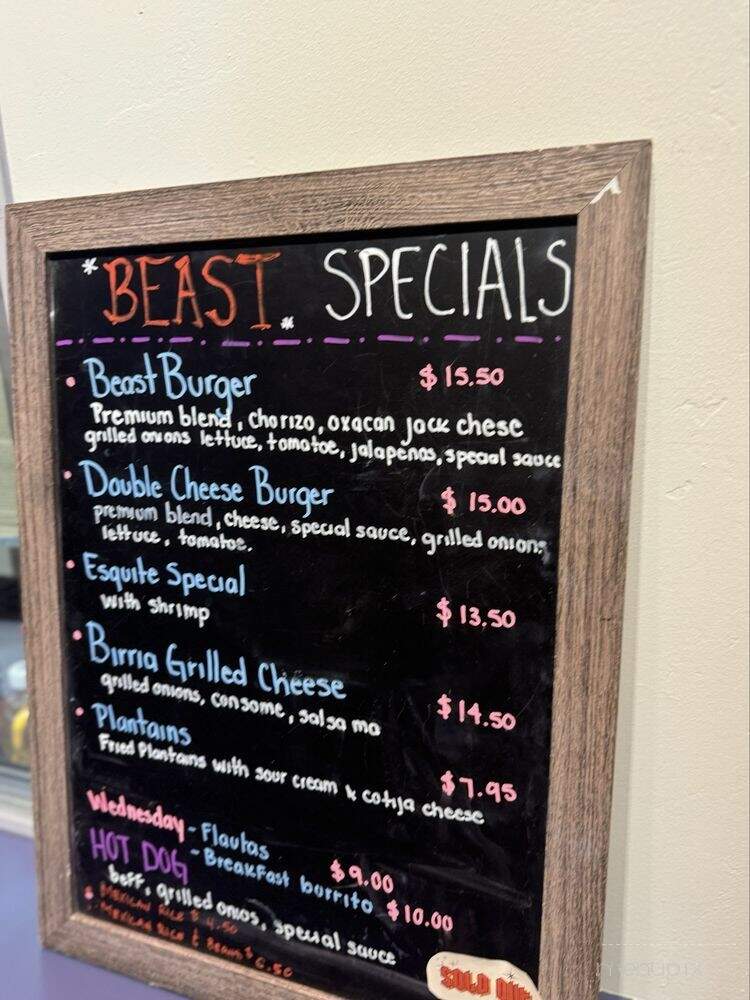 *BEAST* SPECIALS
• Beast Burger $15.50
Premium blend, chorizo, oxacan jack chese
grilled onions lettuce, tomatoe, jalapeños, special sauce
• Double Cheese Burger $15.00
premium blend, cheese, special sauce, grilled onions,
lettuce, tomatoe.
• Esquite Special
with shrimp $13.50
• Birria Grilled Cheese
grilled onions, consome, salsa ma $14.50
• Plantains
Fried Plantains with sour cream & cotija cheese $7.95
Wednesday - Flautas $9.00
- Breakfast burrito $10.00
HOT DOG
beff, grilled onios, special sauce
• MEXICAN RICE $4.50
• MEXICAN RICE & BEANS $6.50
SOLD OUT